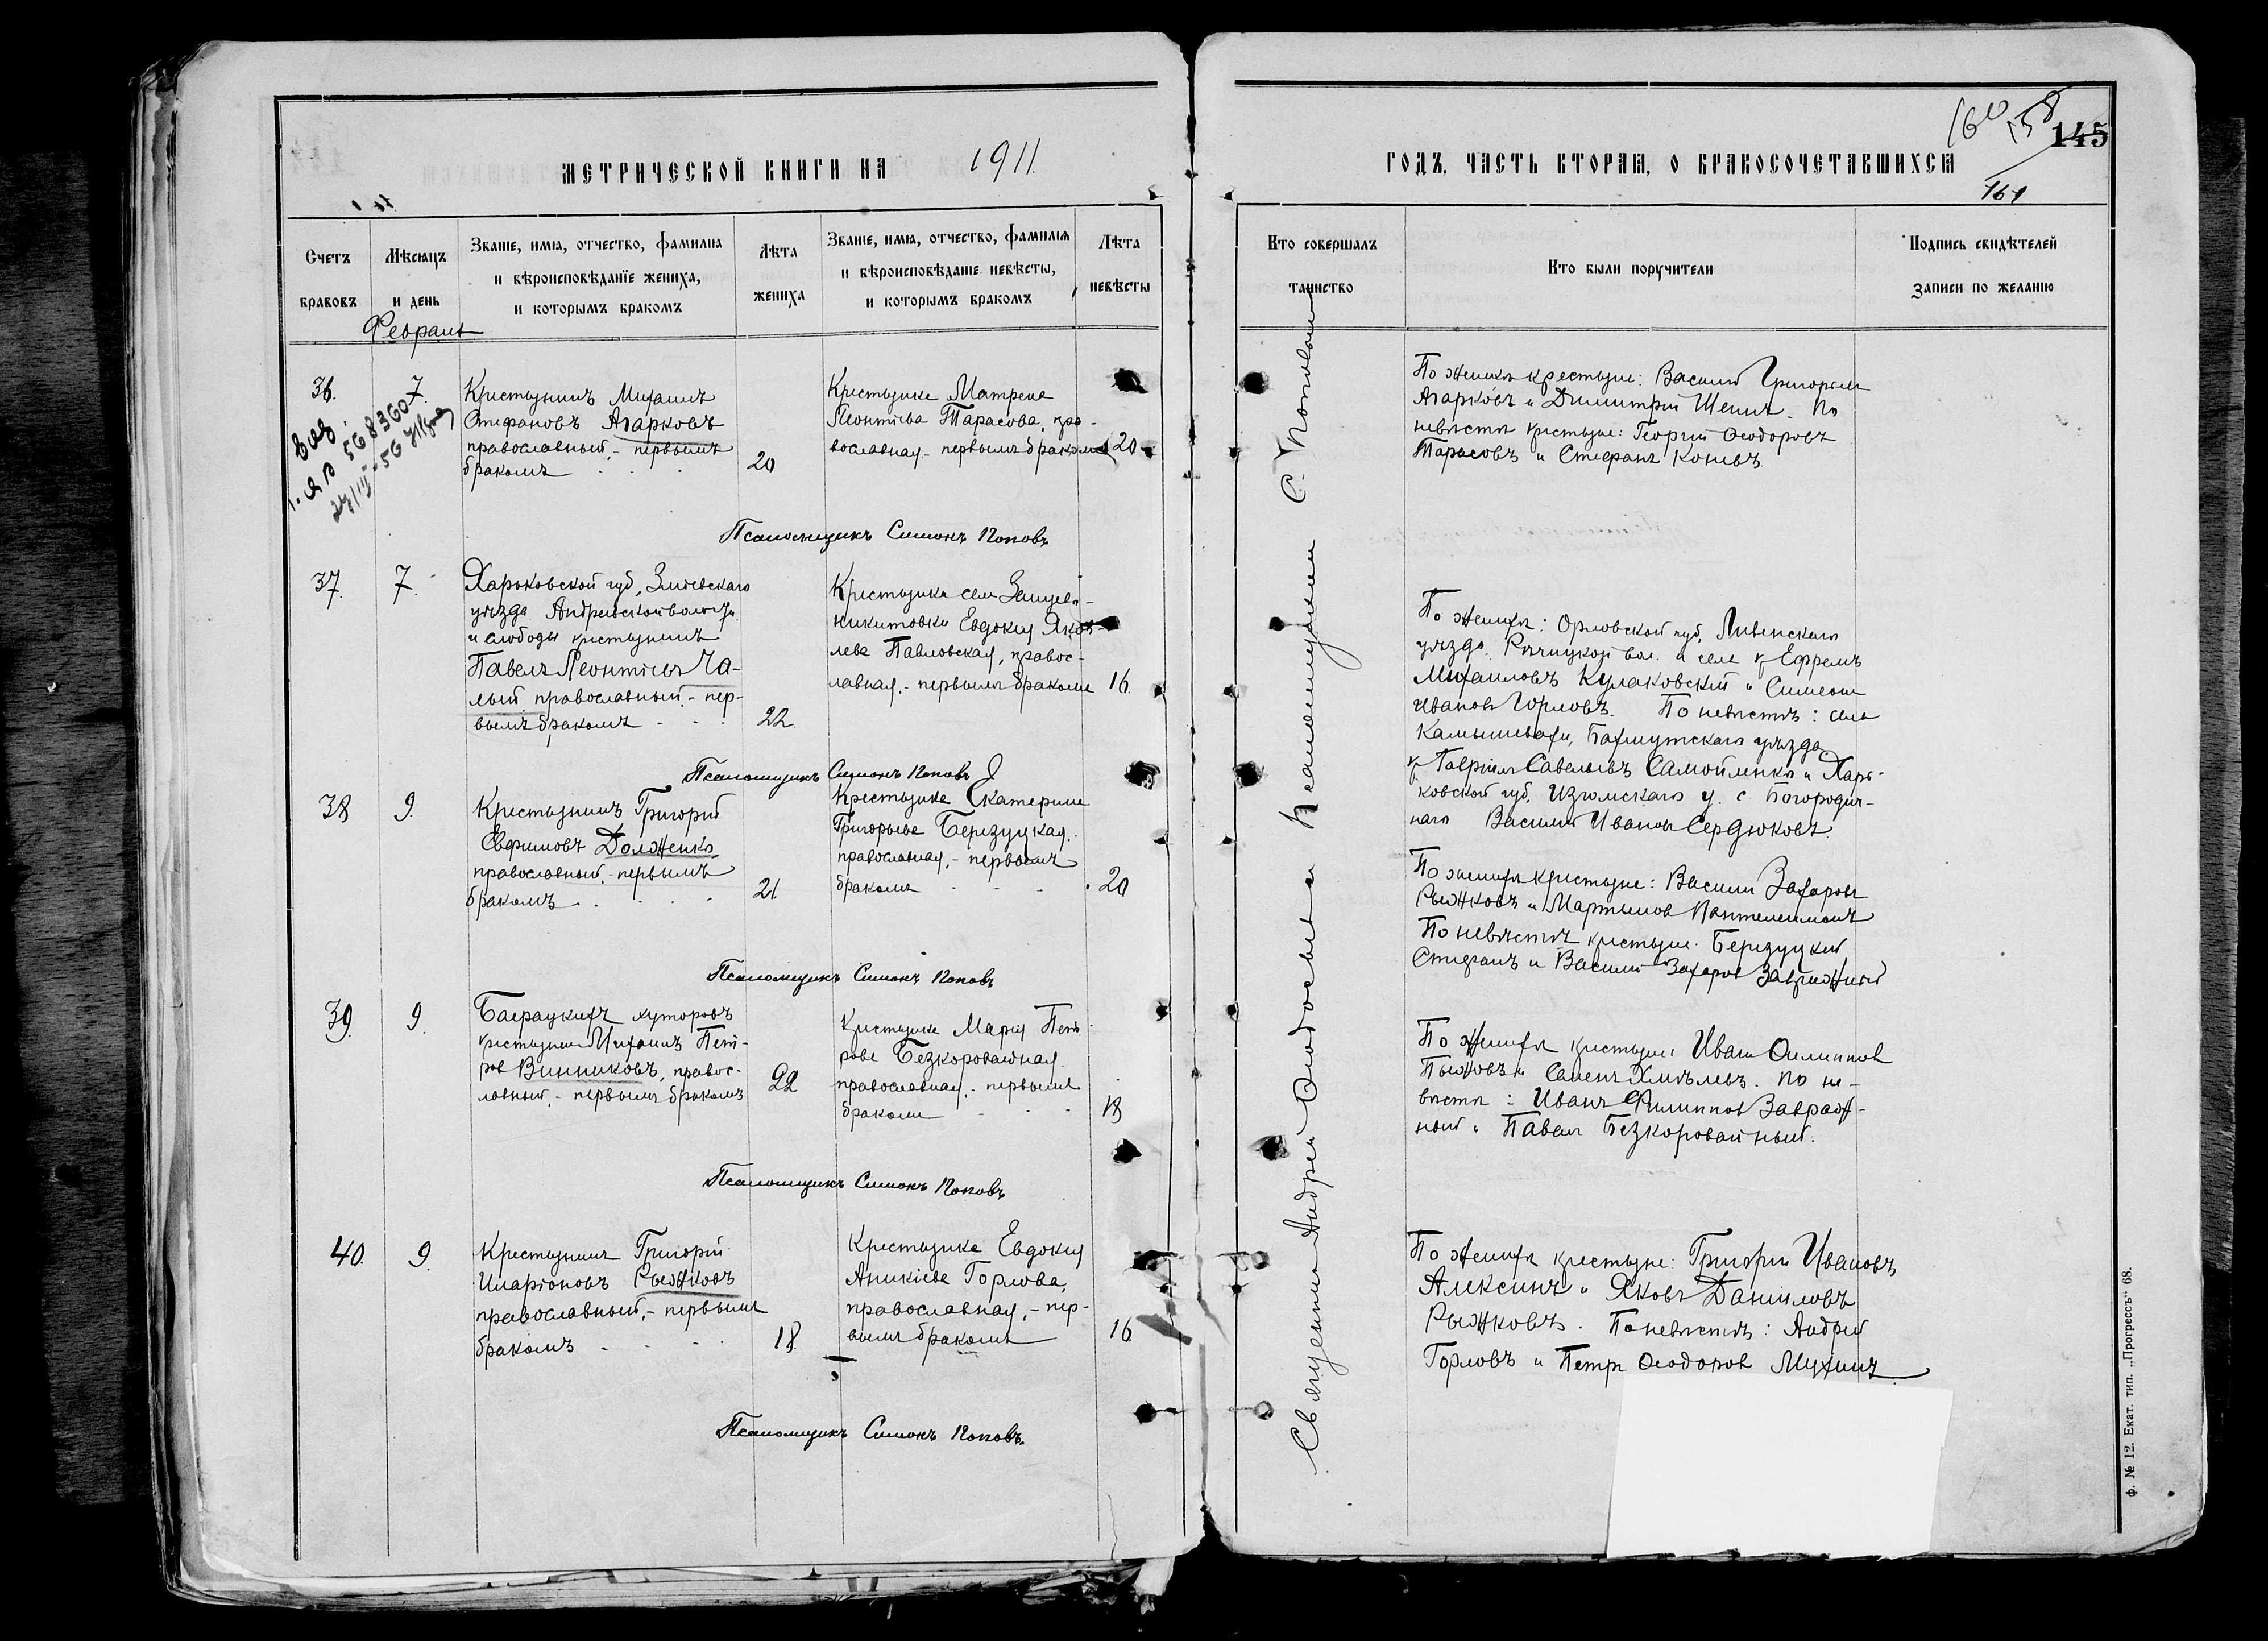 МЕТРИЧЕСКОЙ КНИГИ НА 1911
Счетъ браковъ
Мѣсяцъ и день
Званіе, имя, отчество, фамилія
и вѣроисповѣданіе жениха,
и которымъ бракомъ
Лѣта жениха
Званіе, имя, отчество, фамилія
и вѣроисповѣданіе невѣсты,
и которымъ бракомъ
Лѣта невѣсты
Февраль
36. 7.
568360
Крестьянинъ Михаилъ
Стефановъ Агарковъ
православный, - первымъ
бракомъ
20
Крестьянка Матрена
Леонтіева Тарасова, пра-
вославная - первымъ бракомъ
20
Псаломщикъ Симонъ Поповъ
37. 7.
Харьковской губ., Зміевскаго
уѣзда Андреевской волости
и слободы крестьянинъ
Павелъ Леонтіевъ Ча-
лый православный - пер-
вымъ бракомъ
22.
Крестьянка села
Никитовки Евдокія Яков-
лева Павловская, правос-
лавная, - первымъ бракомъ
16.
Псаломщикъ Симонъ Поповъ
38 9.
Крестьянинъ Григорій
Евфимовъ Долженко
православный, - первымъ
бракомъ
21.
Крестьянка Екатерина
Григорьева Берзуцкая
православная, - первымъ
бракомъ
20
Псаломщикъ Симонъ Поповъ
39. 9.
хуторовъ
крестьянинъ Михаилъ Пет-
ров Винниковъ, правос-
лавный, - первымъ бракомъ
22
Крестьянка Марія Пет-
рова Безкоровайная
православная, - первымъ
бракомъ
18
Псаломщикъ Симонъ Поповъ
40. 9.
Крестьянинъ Григорій
Иларіоновъ Рыжковъ
православный, - первымъ
бракомъ
18.
Крестьянка Евдокія
Аникіева Горлова,
православная, - пер-
вымъ бракомъ
16
Псаломщикъ Симонъ Поповъ.
ГОДЪ, ЧАСТЬ ВТОРАЯ, О БРАКОСОЧЕТАВШИХСЯ
160 158 145
161
Кто совершалъ таинство
Кто были поручители
Подпись свидѣтелей
записи по желанію
Священникъ Андрей Ѳеодосьевъ и Псаломщикомъ С. Поповымъ
По женихѣ крестьяне: Василій Григорьев
Агарковъ и Димитрій Шеинъ. По
невѣстѣ крестьяне: Георгій Ѳеодоровъ
Тарасовъ и Стефанъ Коневъ
По женихѣ: Орловской губ. Ливенскаго
уѣзда Рѣчицкой вол. и села кр Ефремъ
Михаиловъ Кулаковскій и Симеонъ
Ивановъ Горловъ. По невѣстѣ: села
Камышевахи, Бахмутскаго уѣзда
кр Гавріилъ Савельевъ Самойленко и Харь-
ковской губ. Изюмскаго у. с. Богородич-
наго Василій Ивановъ Сердюковъ.
По женихѣ крестьяне: Василій Захаровъ
Рыжковъ и Мартынов Пантелеимонъ
По невѣстѣ крестьяне Берзуцкій
Стефанъ и Василій Захаров
По женихѣ крестьяне Иванъ Филиппов
Пыжовъ и Семенъ Хмѣлевъ. По не-
вѣстѣ: Иванъ Филиппов Завраж-
ный и Павелъ Безкоровайный.
По женихѣ крестьяне: Григорій Ивановъ
Алексинъ и Яковъ Даниловъ
Рыжковъ. По невѣстѣ: Андрей
Горловъ и Петръ Ѳеодоров Мухинъ
Ф. № 12. Екат. тип. „Прогрессъ" 68.